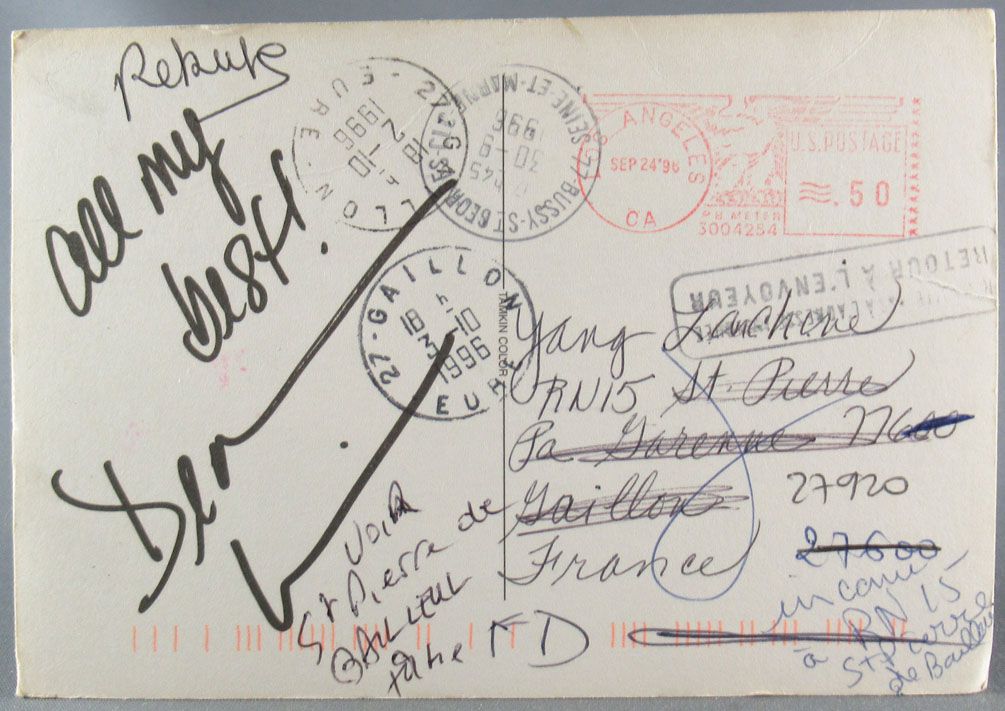 Rebuts
all my
best!
Dean
27-GAILLON
18 H
3 -10
1996
EURE
27-GAILLON
18 H
7 -10
1996
EURE
77 BUSSY-ST GEORGES
SEINE-ET-MARNE
45
30-9
96
LOS ANGELES
SEP 24'96
CA
U.S. POSTAGE
.50
PB METER
3004254
RETOUR À L'ENVOYEUR
TAMKIN COLOR
Yang
RN15 St. Pierre
La Garenne 77600
Gaillon 27920
France 27600
Voir
St Pierre de
BAILLEUL
FD
inconnu
à RN 15
St Pierre
de Bailleul